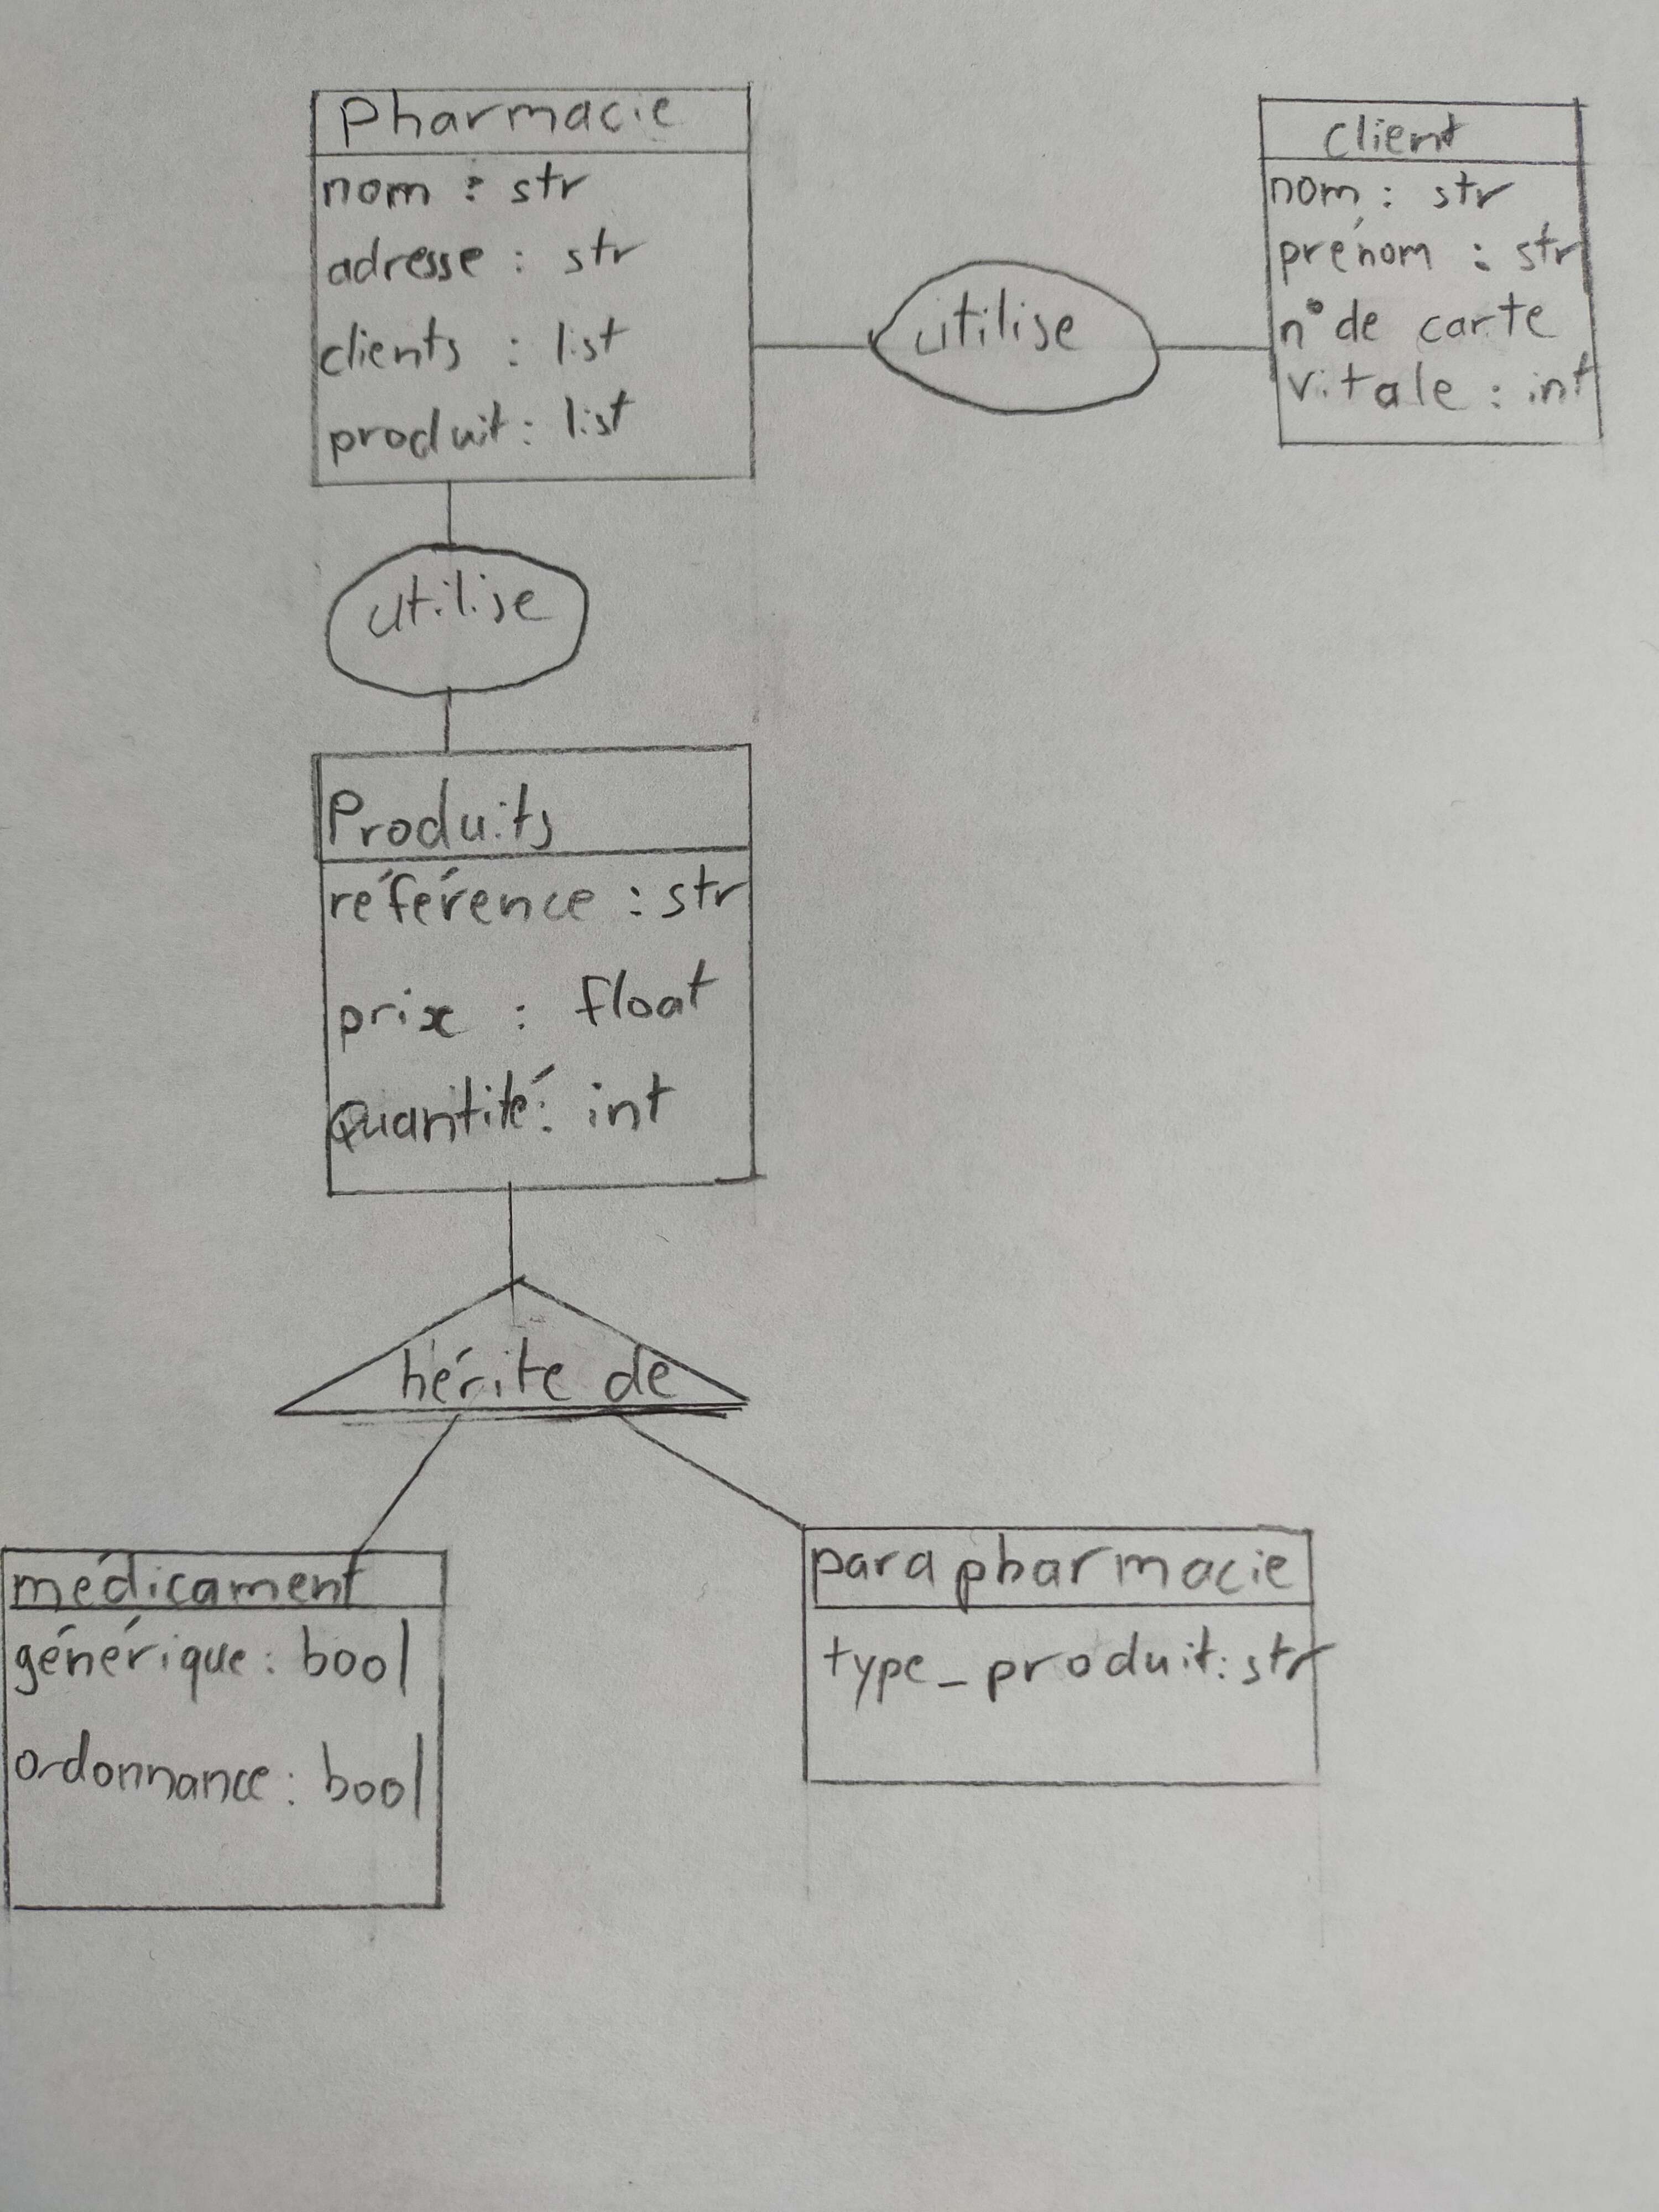 Pharmacie
nom : str
adresse : str
clients : list
produit : list
utilise
client
nom : str
prénom : str
n° de carte
vitale : int
utilise
Produits
référence : str
prix : float
Quantité : int
hérite de
médicament
générique : bool
ordonnance : bool
parapharmacie
type_produit : str